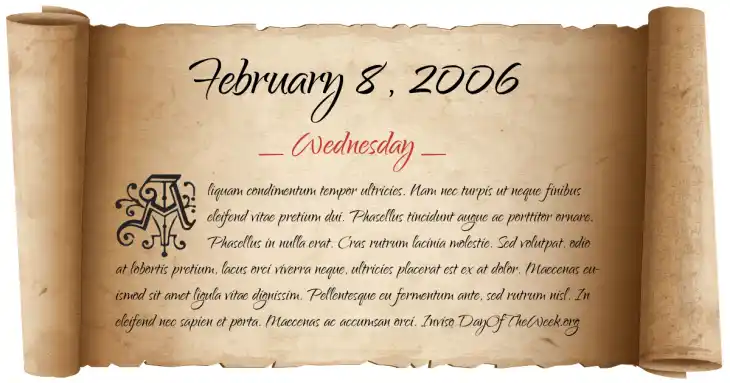 February 8, 2006
_ Wednesday _
Aliquam condimentum tempor ultricies. Nam nec turpis ut neque finibus
eleifend vitae pretium dui. Phasellus tincidunt augue ac porttitor ornare.
Phasellus in nulla erat. Cras rutrum lacinia molestie. Sed volutpat, odio
at lobortis pretium, lacus orci viverra neque, ultricies placerat est ex at dolor. Maecenas eu-
ismod sit amet ligula vitae dignissim. Pellentesque eu fermentum ante, sed rutrum nisl. In
eleifend nec sapien et porta. Maecenas ac accumsan orci. Invisq DayOfTheWeek.org